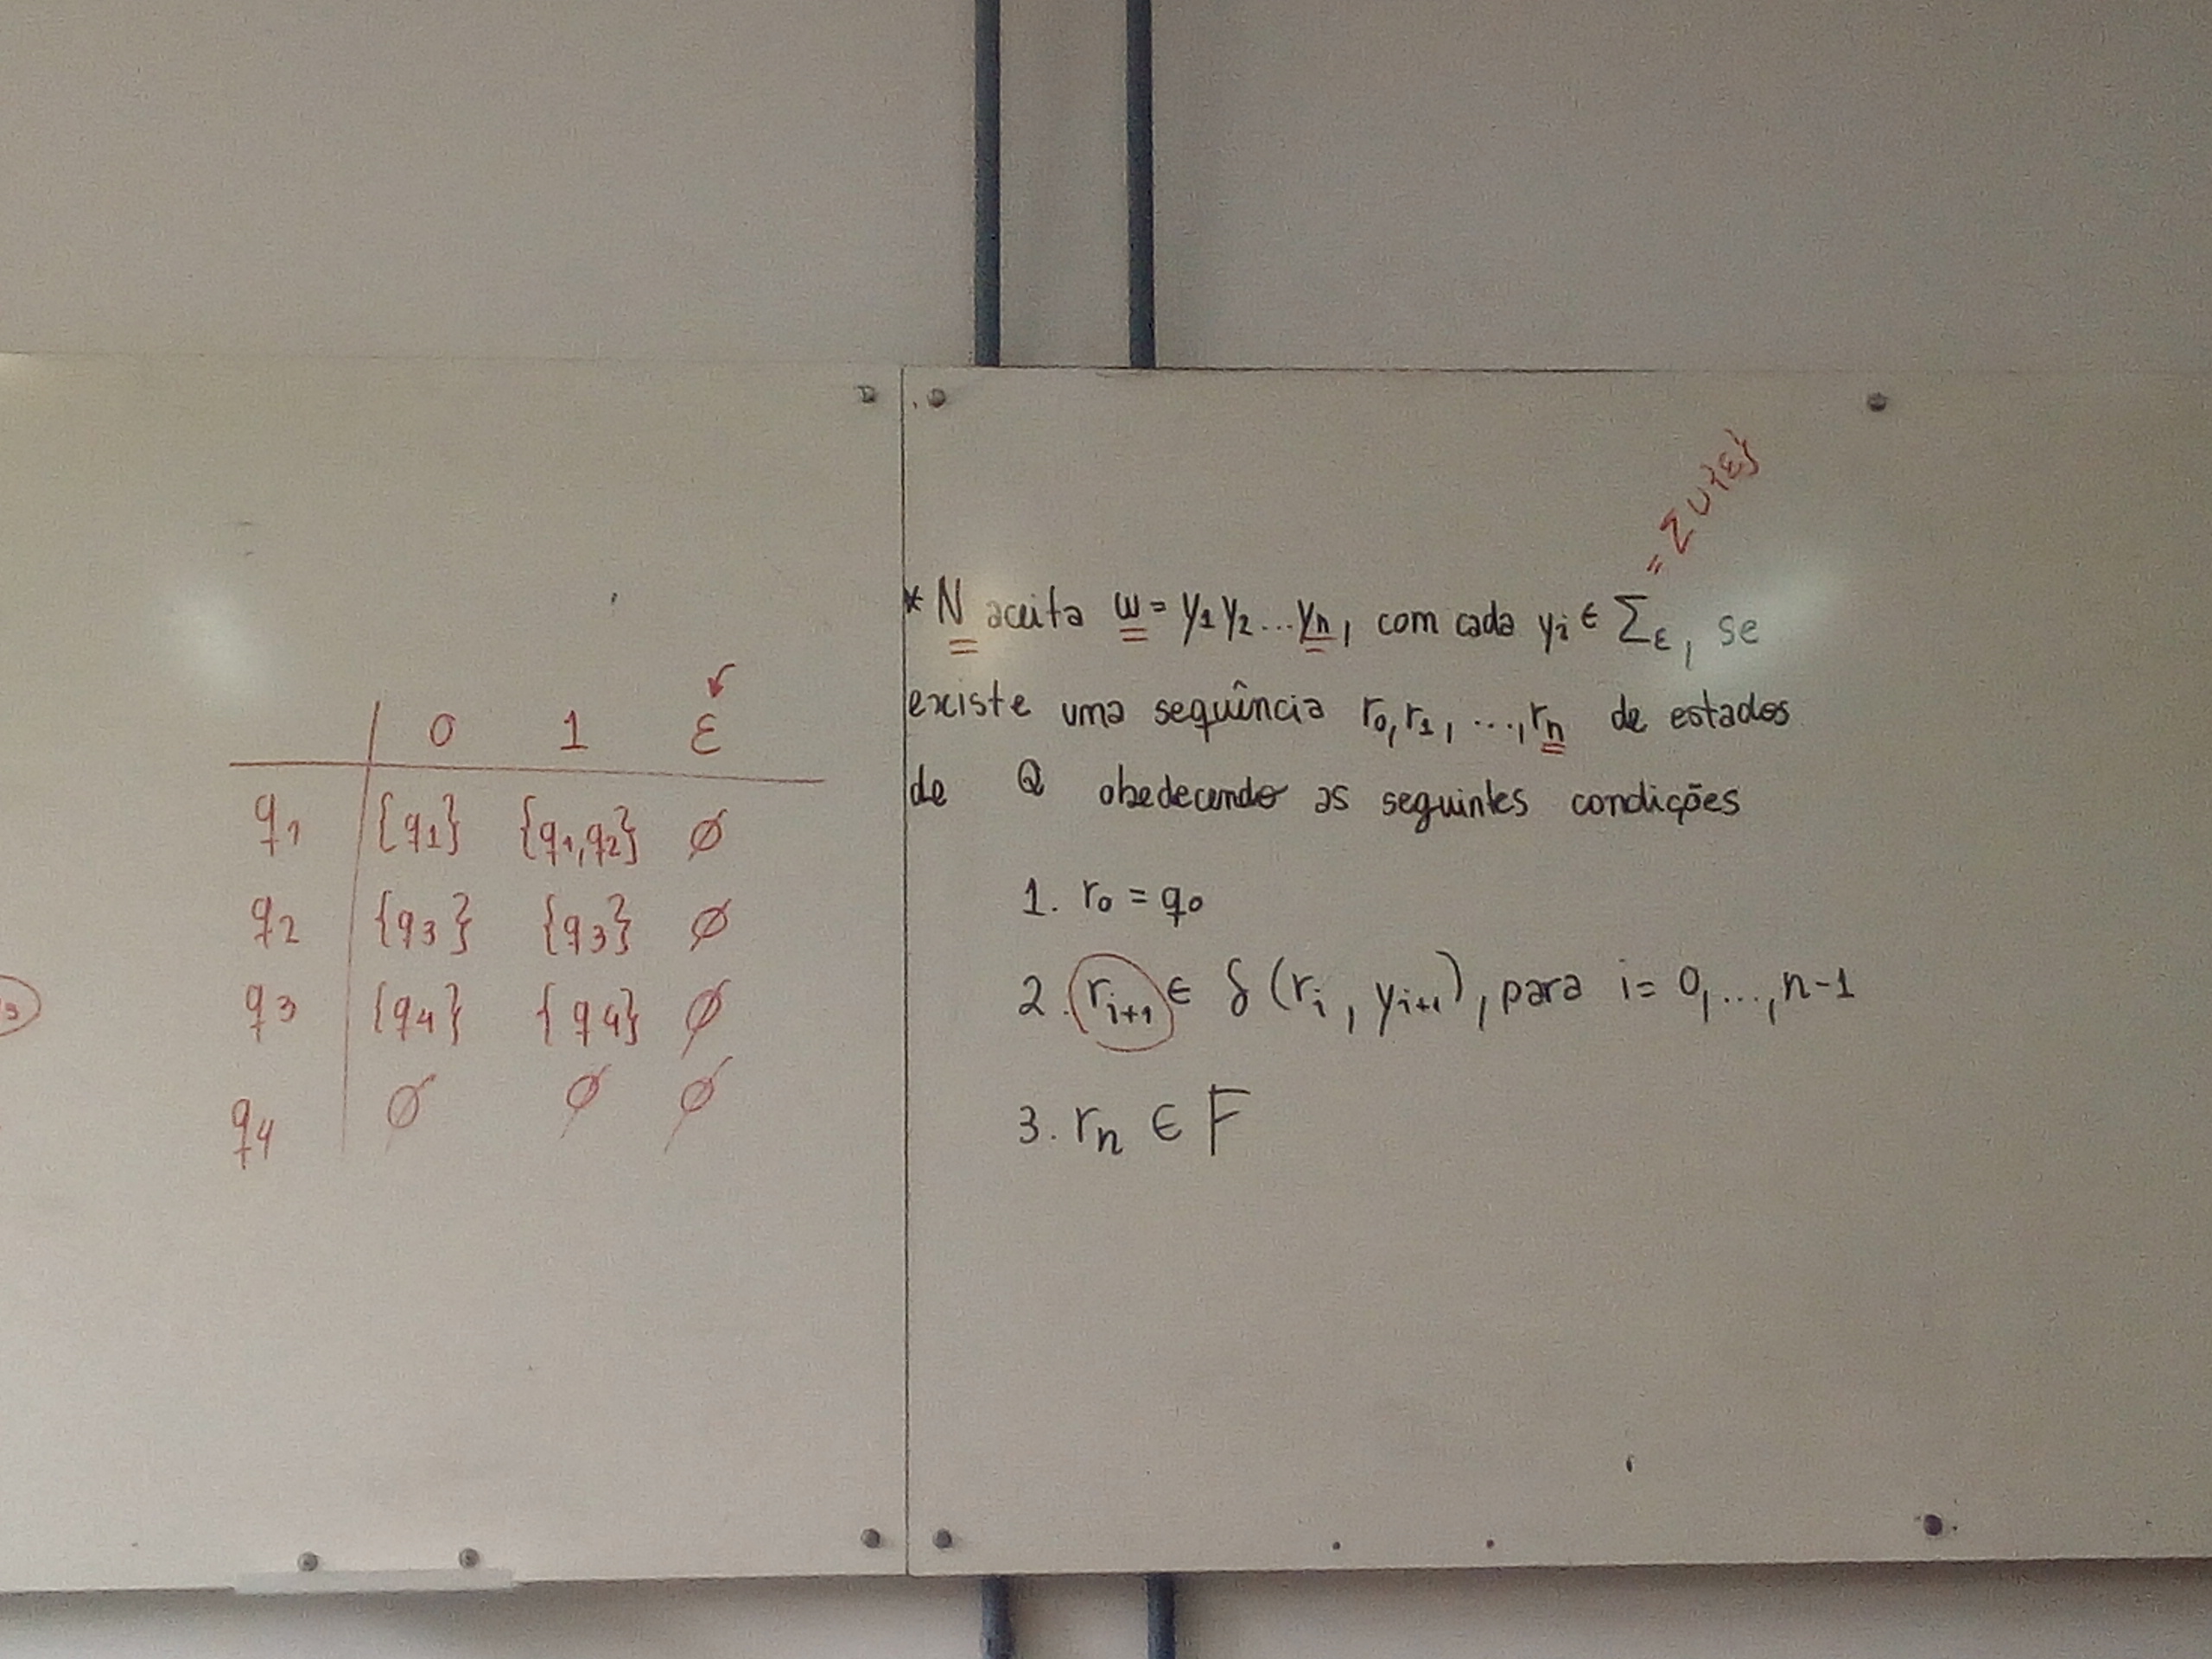 0 1 ε
q1 {q1} {q1,q2} ∅
q2 {q3} {q3} ∅
q3 {q4} {q4} ∅
q4 ∅ ∅ ∅
= Σ ∪ {ε}
* N aceita w = y1 y2 ... yn, com cada yi ∈ Σε, se
existe uma sequência r0, r1, ..., rn de estados
de Q obedecendo as seguintes condições
1. r0 = q0
2. ri+1 ∈ δ(ri, yi+1), para i = 0, ..., n-1
3. rn ∈ F